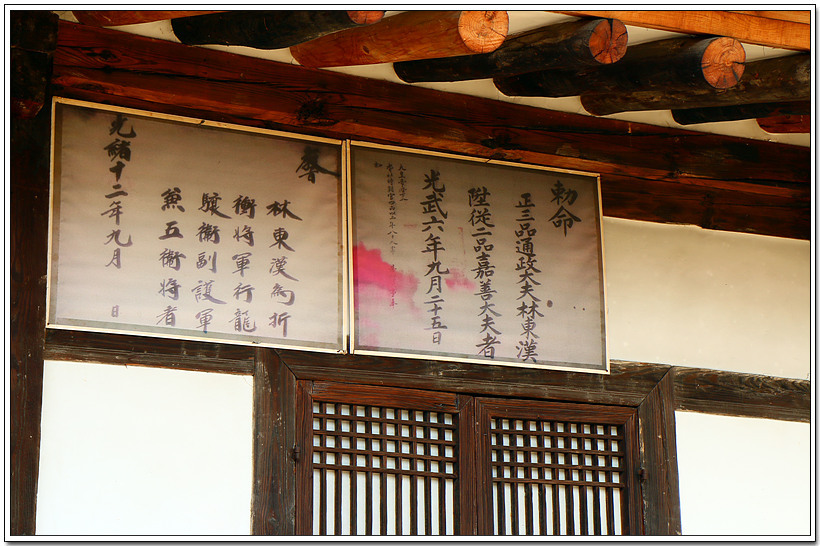 勅命
正三品通政大夫林東漢
陞從二品嘉善大夫者
光武六年九月二十五日
教
林東漢為折
衝將軍行龍
驤衛副護軍
兼五衛將者
光緒十二年九月 日